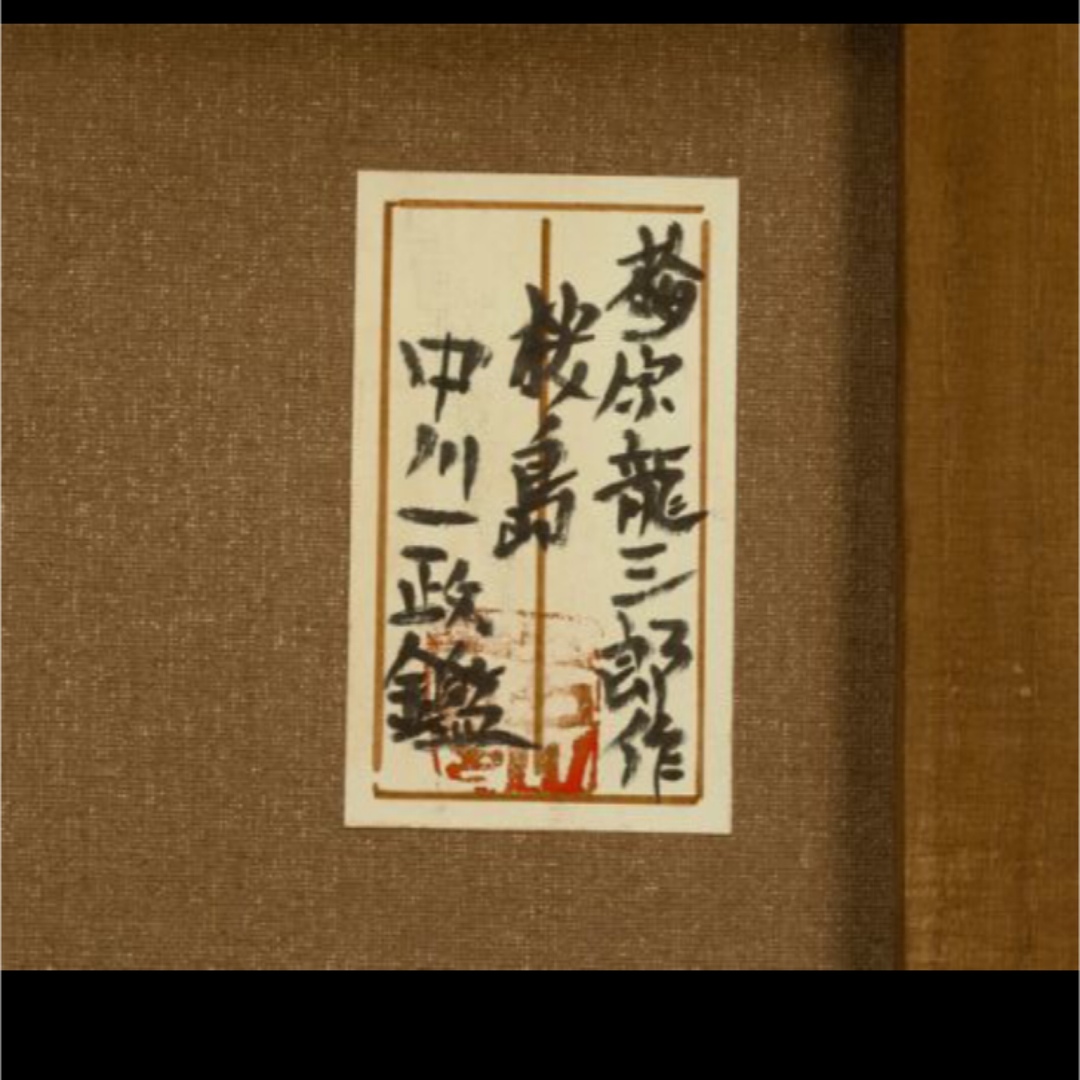 梅原龍三郎作
桜島
中川一政鑑